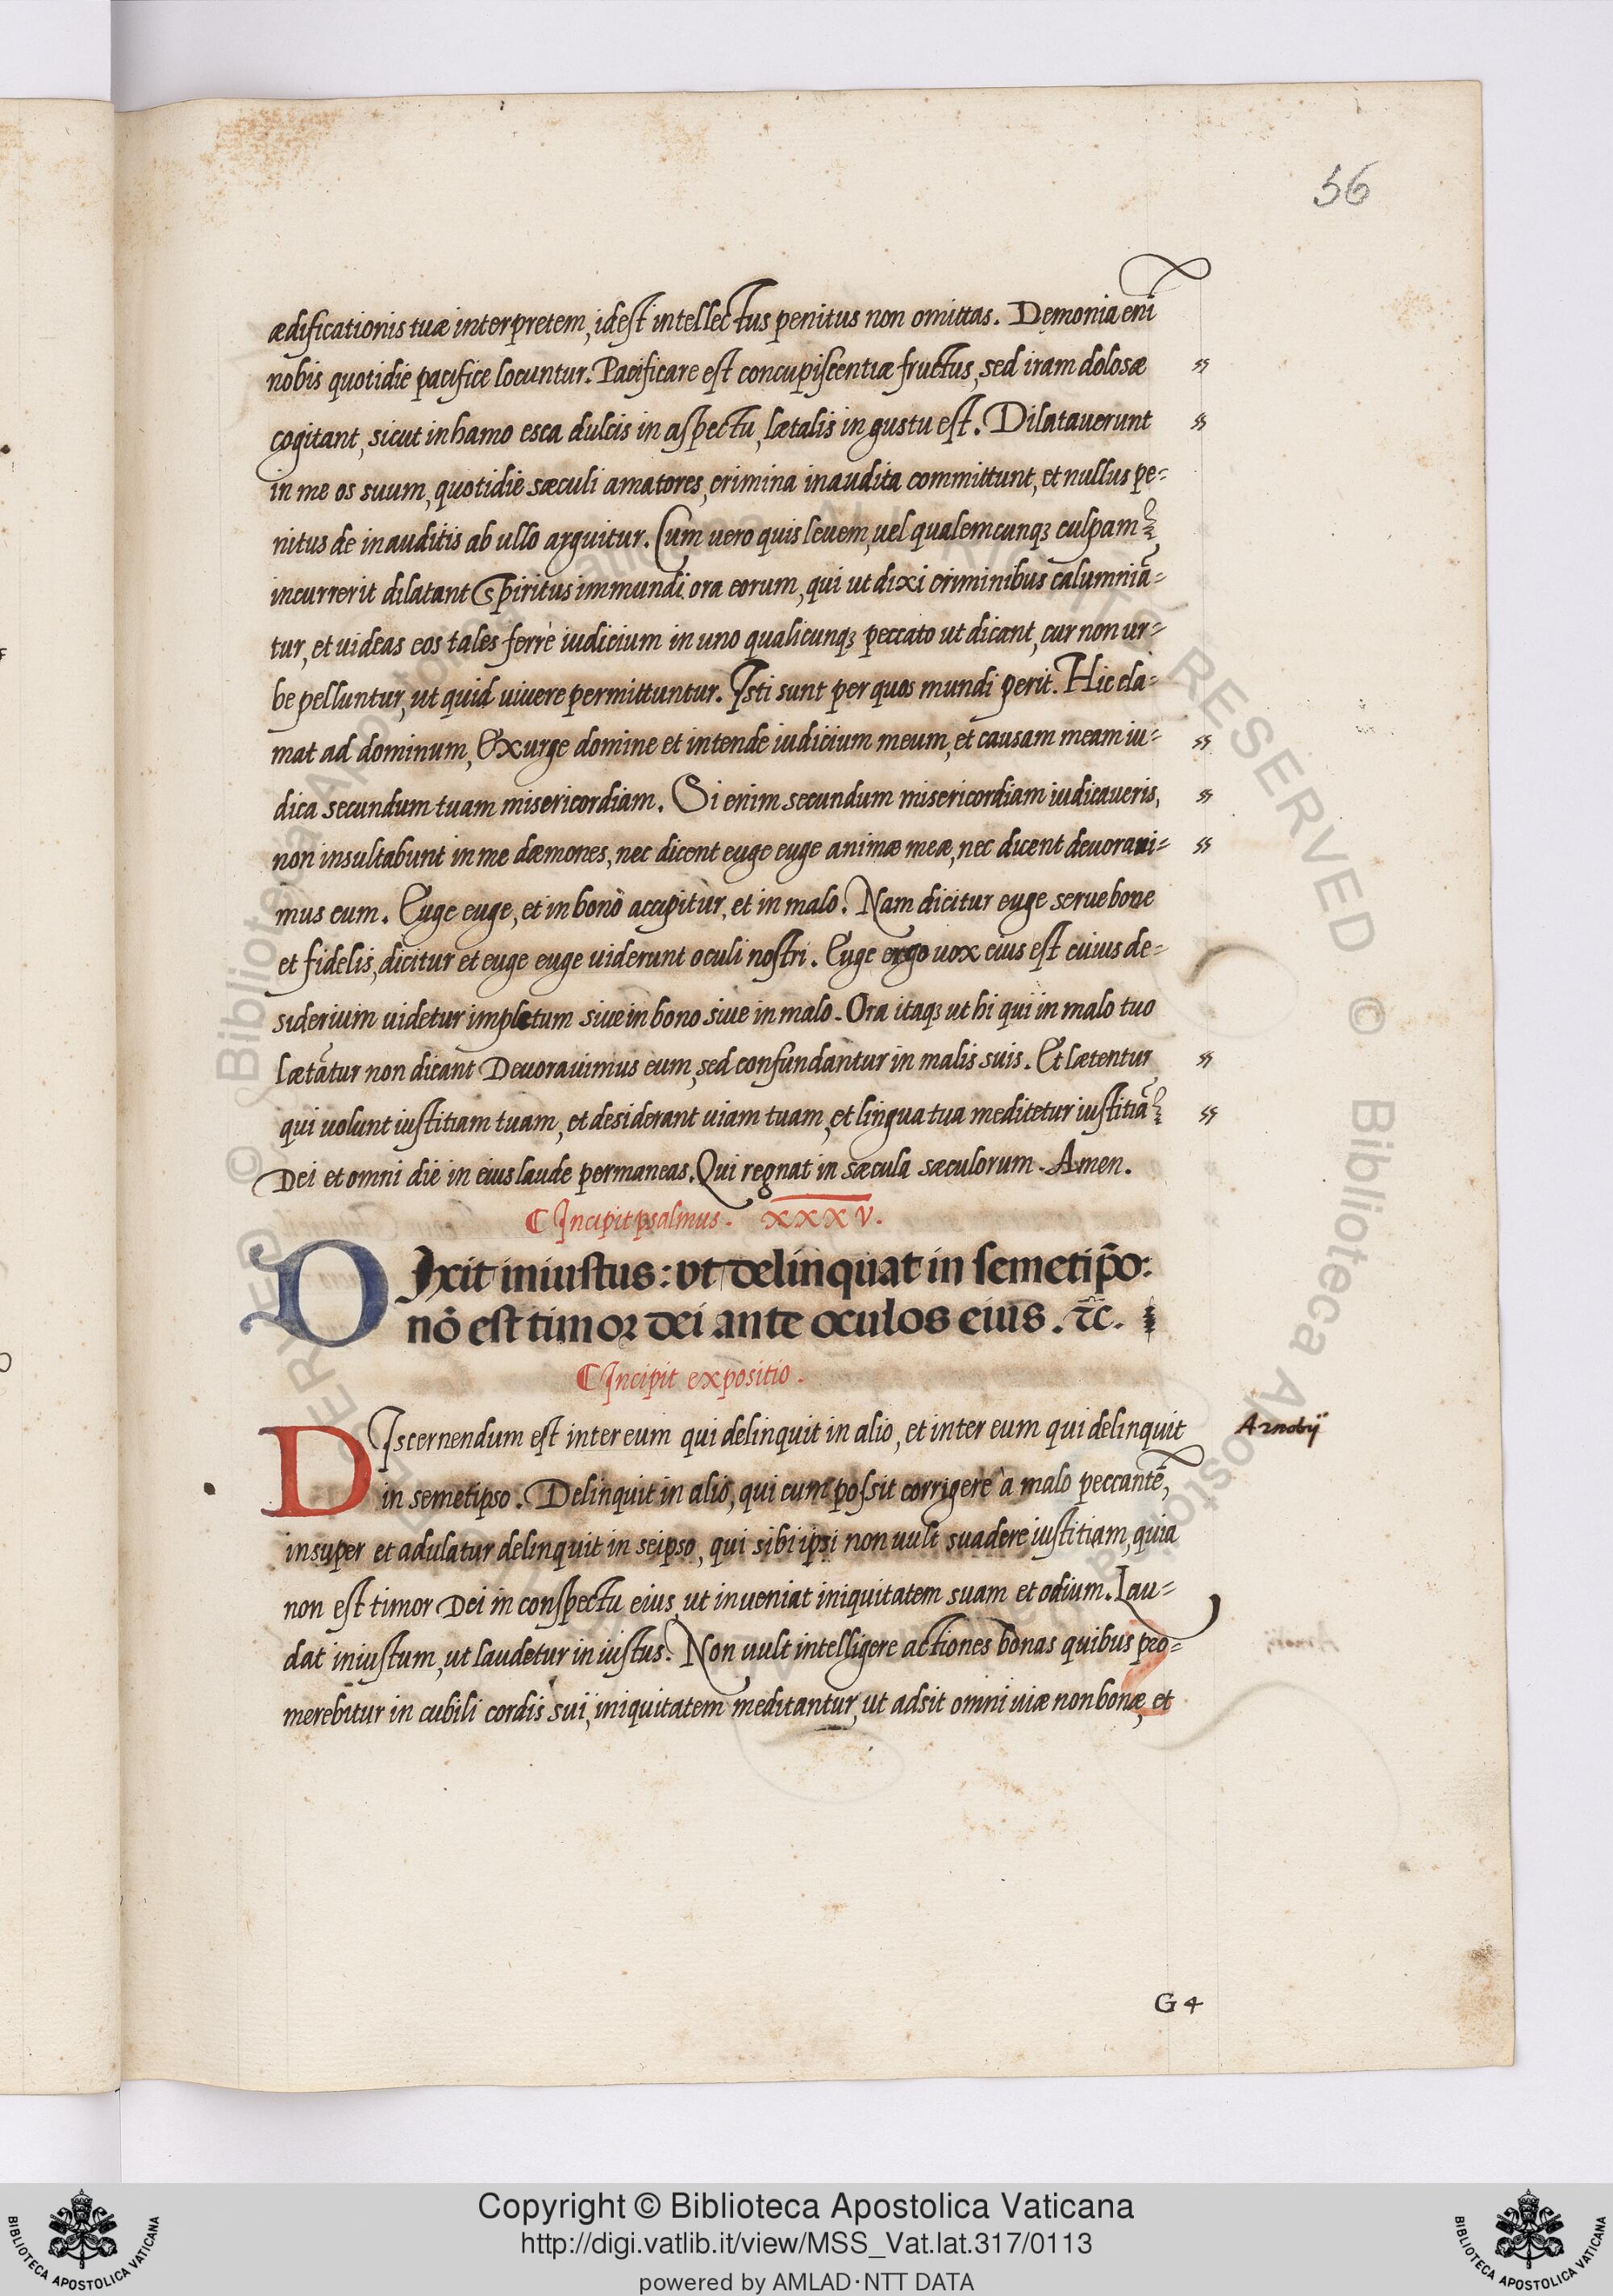 56
ædificationis tuæ interpretem, idest intellectus penitus non omittas. Demonia eni̅
nobis quotidie pacifice locuntur. Pacificare est concupiscentiæ fructus, sed iram dolosæ "
cogitant, sicut in hamo esca dulcis in aspectu, lætalis in gustu est. Dilatauerunt "
in me os suum, quotidie sæculi amatores, crimina inaudita committunt, et nullus pe=
nitus de inauditis ab ullo arguitur. Cum uero quis leuem, uel qualemcunqꝫ culpam
incurrerit dilatant Spiritus immundi ora eorum, qui ut dixi criminibus calumnia̅=
tur, et uideas eos tales ferre iudicium in uno qualicunqꝫ peccato ut dicant, cur non ur=
be pelluntur, ut quid uiuere permittuntur. Isti sunt per quos mundi perit. Hic cla=
mat ad dominum, Exurge domine et intende iudicium meum, et causam meam iu= "
dica secundum tuam misericordiam. Si enim secundum misericordiam iudicaueris, "
non insultabunt in me dæmones, nec dicent euge euge animæ meæ, nec dicent deuoraui= "
mus eum. Euge euge, et in bono accipitur, et in malo. Nam dicitur euge serue bone
et fidelis, dicitur et euge euge uiderunt oculi nostri. Euge ergo uox eius est cuius de=
siderium uidetur impletum siue in bono siue in malo. Ora itaqꝫ ut hi qui in malo tuo
læta̅tur non dicant Deuorauimus eum, sed confundantur in malis suis. Et lætentur "
qui uolunt iustitiam tuam, et desiderant uiam tuam, et lingua tua meditetur iustitia̅ "
Dei et omni die in eius laude permaneas. Qui regnat in sæcula sæculorum. Amen.
¶ Incipit psalmus. XXXV.
DIxit iniustus: vt delinquat in semetip̅o:
no̅ est timor dei ante oculos eius. ⁊c̅.
¶ Incipit expositio.
DIscernendum est inter eum qui delinquit in alio, et inter eum qui delinquit
Arnobij
in semetipso. Delinquit in alio, qui cum possit corrigere à malo peccante̅,
insuper et adulatur delinquit in seipso, qui sibi ipsi non uult suadere iustitiam, quia
non est timor Dei in conspectu eius, ut inueniat iniquitatem suam et odium. Lau=
dat iniustum, ut laudetur iniustus. Non uult intelligere actiones bonas quibus pro=
merebitur in cubili cordis sui, iniquitatem meditantur, ut adsit omni uiæ non bonæ, et
G 4
© Biblioteca Apostolica Vaticana
ALL RIGHTS RESERVED © Biblioteca Apostolica
Copyright © Biblioteca Apostolica Vaticana
http://digi.vatlib.it/view/MSS_Vat.lat.317/0113
powered by AMLAD·NTT DATA
BIBLIOTECA APOSTOLICA VATICANA
BIBLIOTECA APOSTOLICA VATICANA